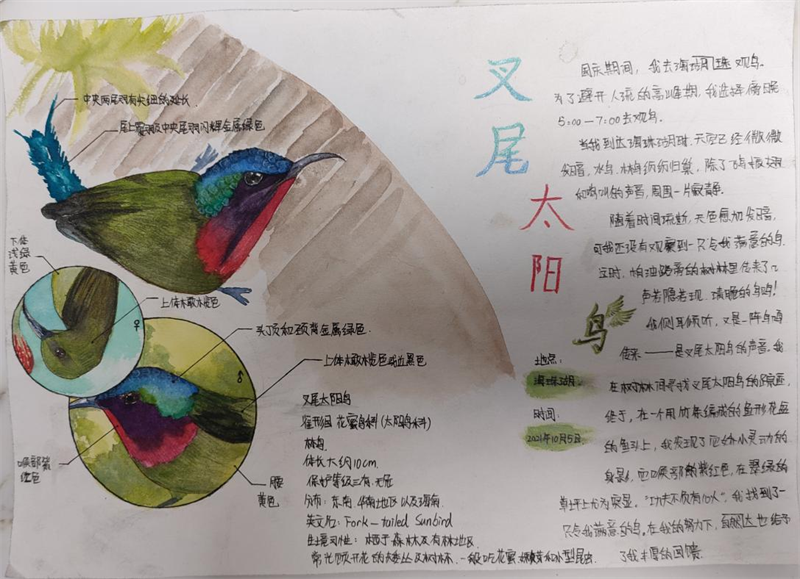 叉尾太阳鸟
中央两尾羽有尖细的延长
尾上覆羽及中央尾羽闪辉金属绿色
下体
浅绿
黄色
上体橄榄色
♀
头顶和颈背金属绿色.
上体橄榄色或近黑色
♂
喉部紫
红色
腰
黄色
叉尾太阳鸟
雀形目 花蜜鸟科(太阳鸟科)
林鸟
体长大约10cm.
保护等级三有.无危
分布:东南 华南地区以及海南.
英文名:Fork-tailed Sunbird
生境习性:栖于森林及有林地区
常光顾开花的矮丛及树林.一般吃花蜜 和小型昆虫
地点:
海珠湖.
时间:
2021年10月5日
国庆期间,我去海珠湖观鸟.
为了避开人流的高峰期,我选择傍晚
5:00-7:00去观鸟.
当我到达海珠湖时,天空已经微微
发暗,水鸟、林鸟纷纷归巢,除了
和鸟叫的声音,周围一片寂静.
随着时间流逝,天色愈加发暗,
可我还没有观察到一只令我满意的鸟.
这时,怕油路旁的树林里传来了几
声若隐若现、清脆的鸟鸣!
我侧耳倾听,又是一阵鸟鸣
传来——是叉尾太阳鸟的声音.我
在树林间寻找叉尾太阳鸟的踪迹,
终于,在一个用竹条编成的鱼形花盆
的鱼头上,我发现了它娇小灵动的
身影,它喉部的紫红色,在翠绿的
草坪上尤为突显."功夫不负有心人",我找到了一
只令我满意的鸟.在我的努力下,自然也给予
了我丰厚的回馈.